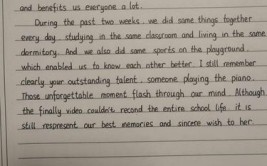 and benefits us everyone a lot.
During the past two weeks. we did some things together
every day. studying in the same classroom and living in the same
dormitory. And we also did some sports on the playground.
which enabled us to know each other better. I still remember
clearly your outstanding talent. someone playing the piano.
Those unforgettable moment flash through our mind. Although
the finally video couldn't record the entire school life. it is
still respresent our best memories and sincere wish to her.